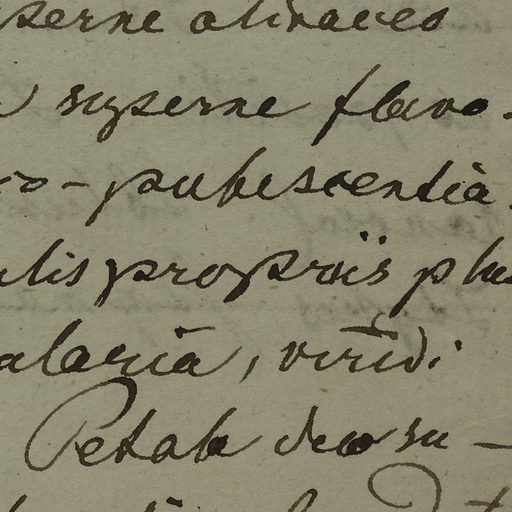 superne olivaceo
superne flavo-
co-pubescentia
ulis propriis plu
alaria, viridi
Petala deorsu-